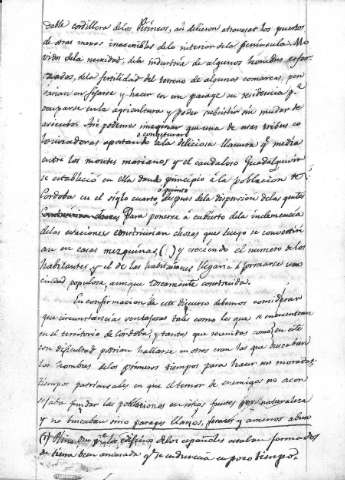 dable cordillera de los Pirineos, así debieron atravesar los puertos
de otras menos inaccesibles de lo interior de la península. Mo-
vidos de la necesidad, de la industria de algunos hombres esfor-
zados, de la fertilidad del terreno de algunas comarcas, pen-
sarian en fijarse y hacer en un parage su residencia pª
ocuparse en la agricultura y poder subsistir sin mudar de
asientos. Así podemos imaginar que una de esas tribus co-
lonizadoras aportando a la deliciosa llanura qe media
entre los montes marianos y el caudaloso Guadalquivir
se estableció en ella dando principio à la poblacion de
Córdoba en el siglo cuarto ó quinto despues de la dispersion de las gentes
Para ponerse à cubierto de la inclemencia
de las estaciones construirian chozas que luego se convertiri-
an en casas mezquinas, (1) y creciendo el numero de los
habitantes y el de las habitaciones llegaria à formarse una
ciudad populosa, aunque toscamente construida.
En confirmacion de este discurso debemos considerar
que circunstancias ventajosas tales como las que se encuentran
en el territorio de Córdoba, y tantas que reunidas como en este
con dificultad podrian hallarse en otros eran las que buscaban
los hombres de los primeros tiempos para hacer sus moradas,
tiempos patriarcales en que el temor de enemigos no acon-
sejaba fundar las poblaciones en sitios fuertes por naturaleza
y se buscaban sino parages llanos, feraces y amenos
(1) los edificios de los españoles estaban formados
de tierra bien amasada y se endurecia en poco tiempo.